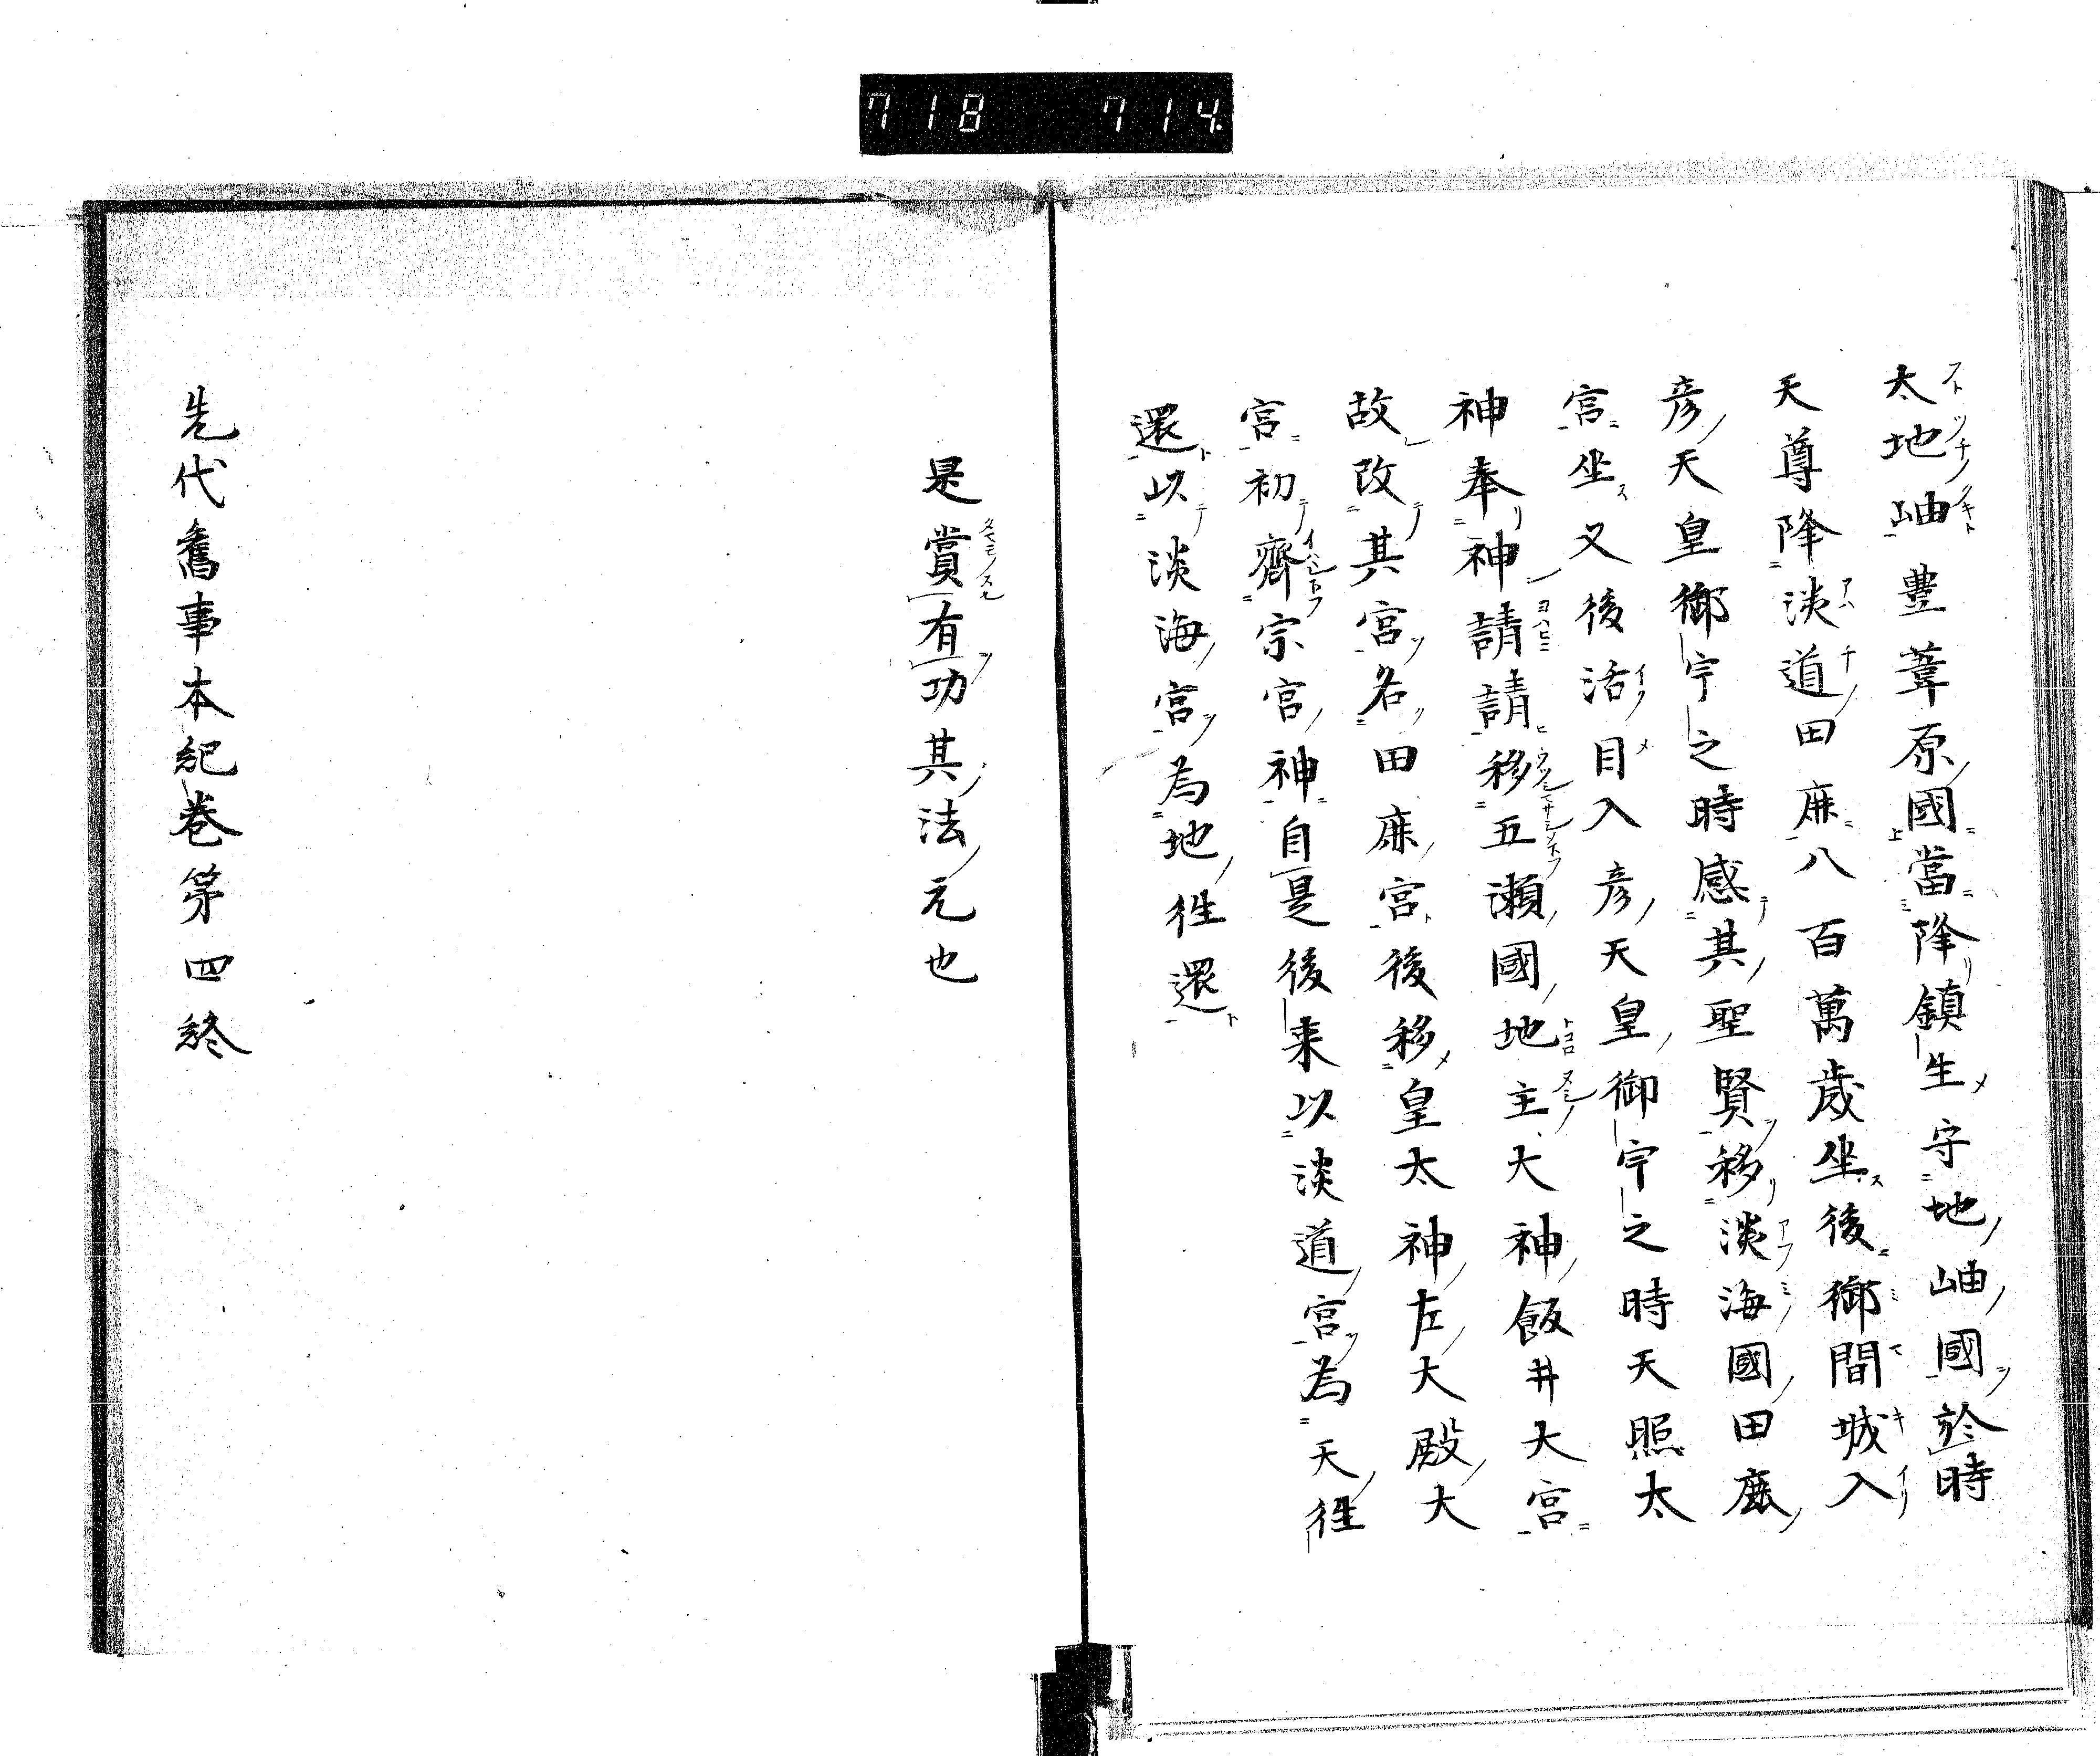 718 714
太地岫豊葦原國當降鎮生守地岫國於時
天尊降淡道田麻八百萬歳坐後御間城入
彦天皇御宇之時感其聖賢移淡海國田麻
宮坐又後活目入彦天皇御宇之時天照太
神奉神請請移五瀬國地主大神飯井大宮
故改其宮名田麻宮後移皇太神左大殿大
宮初齊宗宮神自是後来以淡道宮為天徃
還以淡海宮為地徃還
是賞有功其法元也
先代舊事本紀巻第四終